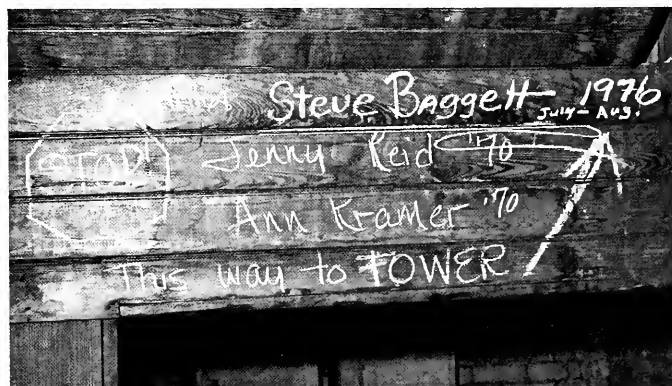 Steve Baggett 1976
July - Aug.
STOP
Jenny Reid '70
Ann Kramer '70
This way to TOWER